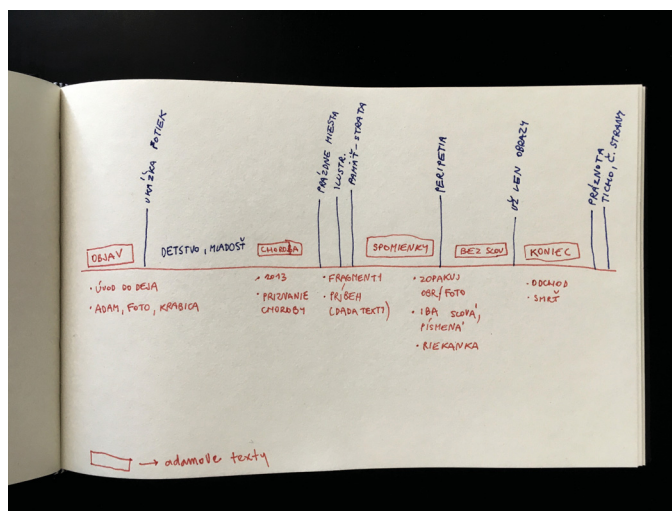 UKÁŽKA POTIEK
PRÁZDNE MIESTA
ILUSTR.
PAMÄŤ-STRATA
PERIPETIA
UŽ LEN OBRAZY
PRÁZNOTA
TICHO, Č. STRANY
OBJAV
DETSTVO, MLADOSŤ
CHOROBA
SPOMIENKY
BEZ SLOV
KONIEC
• ÚVOD DO DEJA
• ADAM, FOTO, KRABICA
• 2013
• PRIZNANIE
CHOROBY
• FRAGMENTY
• PRÍBEH
(DADA TEXTY)
• ZOPAKUJ
OBR/FOTO
• IBA SLOVÁ,
PÍSMENÁ
• RIEKANKA
• ODCHOD
• SMRŤ
→ adamove texty